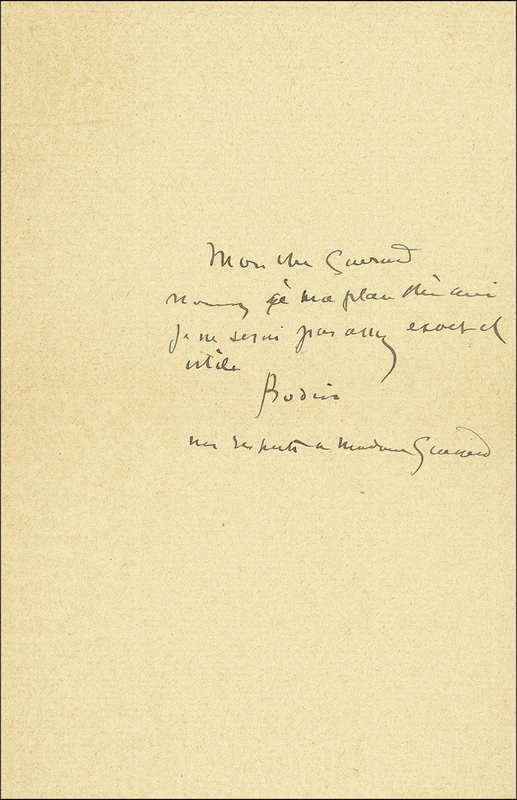 Mon cher Guerard
nommez à ma place thin ami
je ne serai pas assez exact et
utile
Rodin
mes respects a Madame Guerard